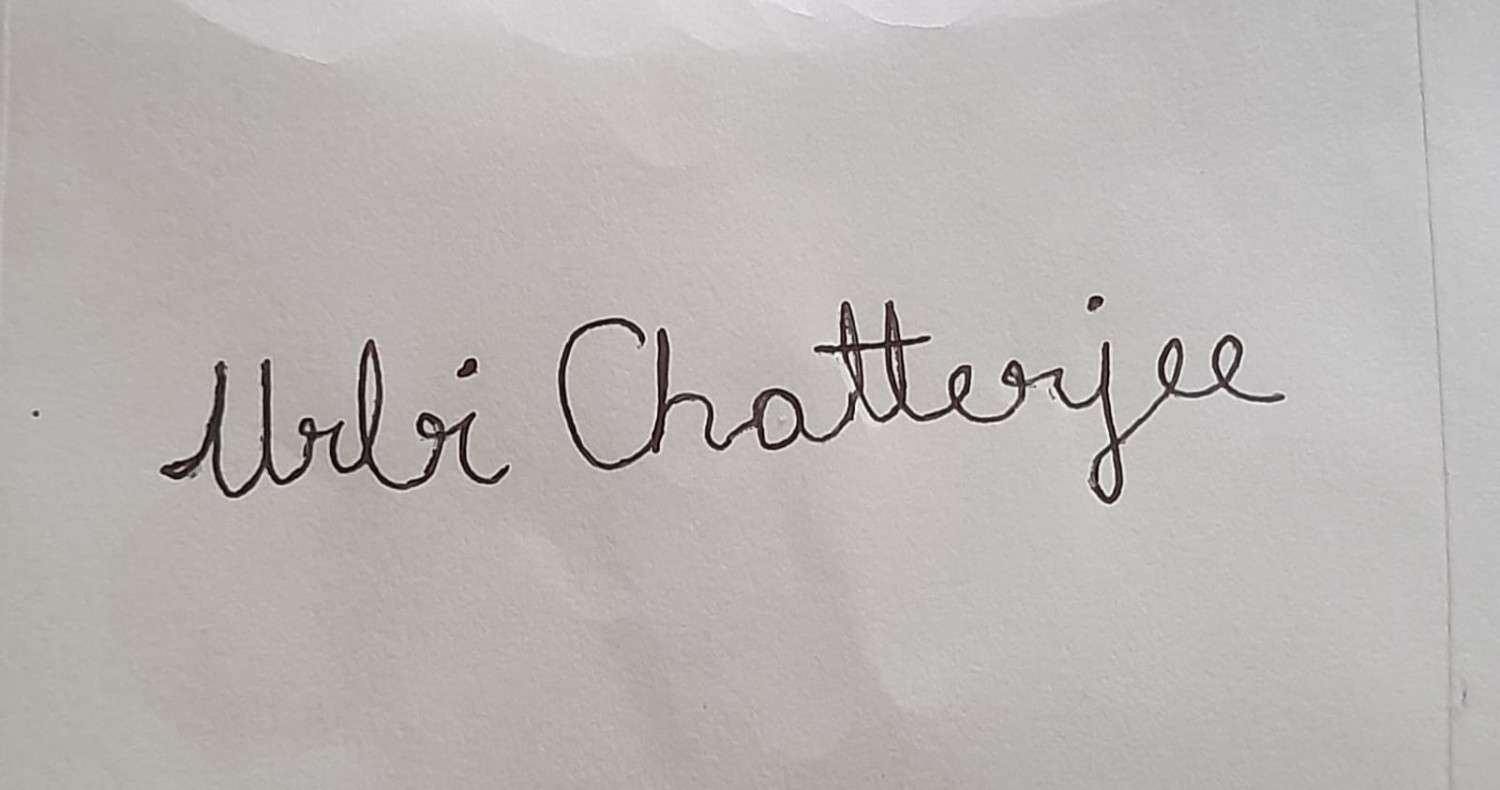 Urbi Chatterjee